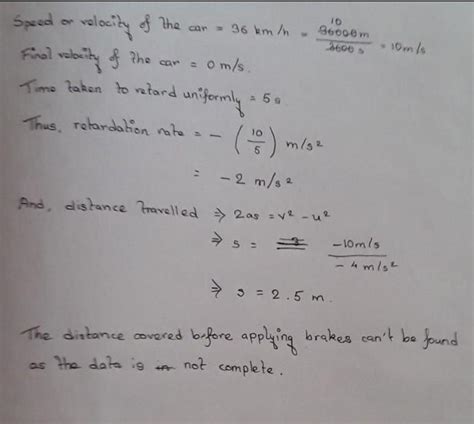 Speed or velocity of the car = 36 km/h = 36000m / 3600 s = 10 m/s
10
Final velocity of the car = 0 m/s.
Time taken to retard uniformly = 5 s
Thus, retardation rate = - (10/5) m/s²
= -2 m/s²
And, distance travelled ⇒ 2as = v² - u²
⇒ s = -10m/s / -4 m/s²
⇒ s = 2.5 m.
The distance covered before applying brakes can't be found
as the data is not complete.